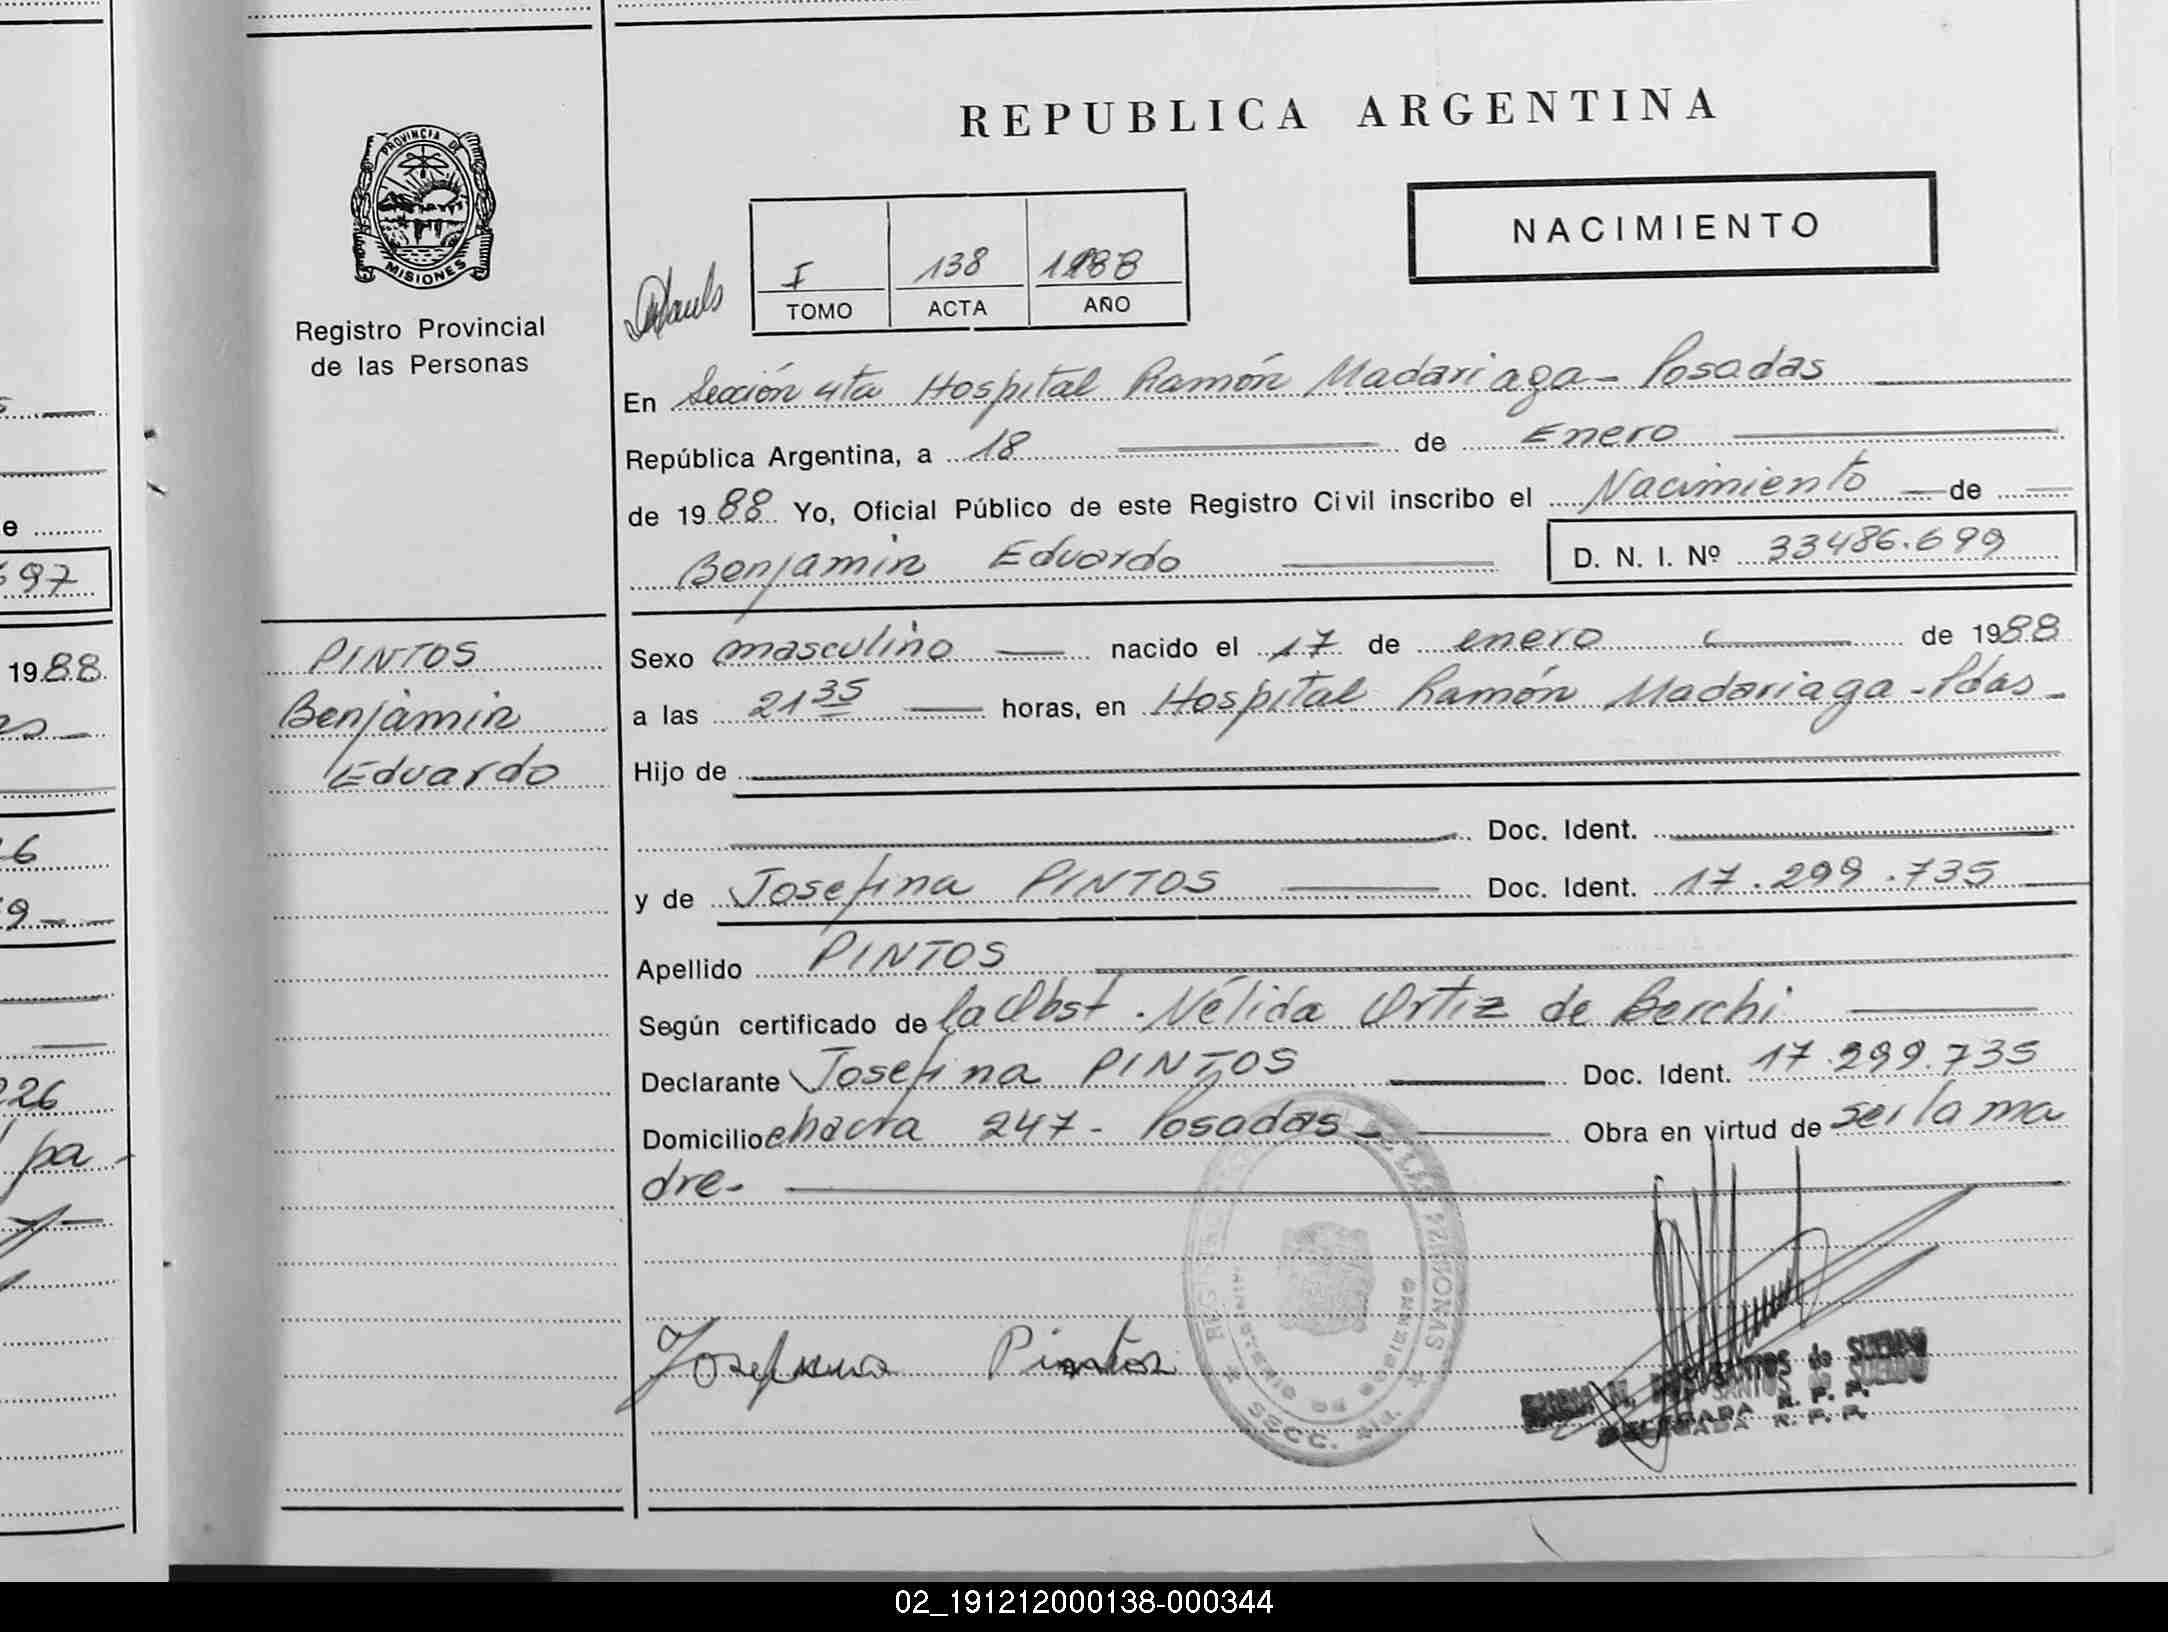 REPUBLICA ARGENTINA
PROVINCIA DE
MISIONES
Registro Provincial
de las Personas
NACIMIENTO
I 138 1988
TOMO ACTA AÑO
En Sección 4ta Hospital Ramón Madariaga - Posadas
República Argentina, a 18 de Enero
de 1988 Yo, Oficial Público de este Registro Civil inscribo el Nacimiento de
Benjamin Eduardo D. N. I. Nº 33486.699
PINTOS
Benjamin
Eduardo
Sexo masculino nacido el 17 de enero de 1988
a las 21 35 horas, en Hospital Ramón Madariaga - Pdas
Hijo de
Doc. Ident.
y de Josefina PINTOS Doc. Ident. 17.299.735
Apellido PINTOS
Según certificado de la Obst. Nélida Ortiz de Berchi
Declarante Josefina PINTOS Doc. Ident. 17.299.735
Domicilio chacra 247 - Posadas - Obra en virtud de ser la ma
dre.
Josefina Pintos
SECC.
SANTOS de
DELEGADA R. P. P.
697
1988
26
pa-
02_191212000138-000344